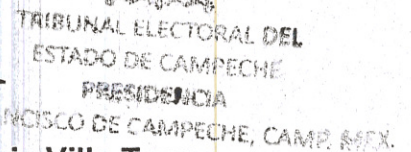 TRIBUNAL ELECTORAL DEL
ESTADO DE CAMPECHE
PRESIDENCIA
NCISCO DE CAMPECHE, CAMP. MEX.